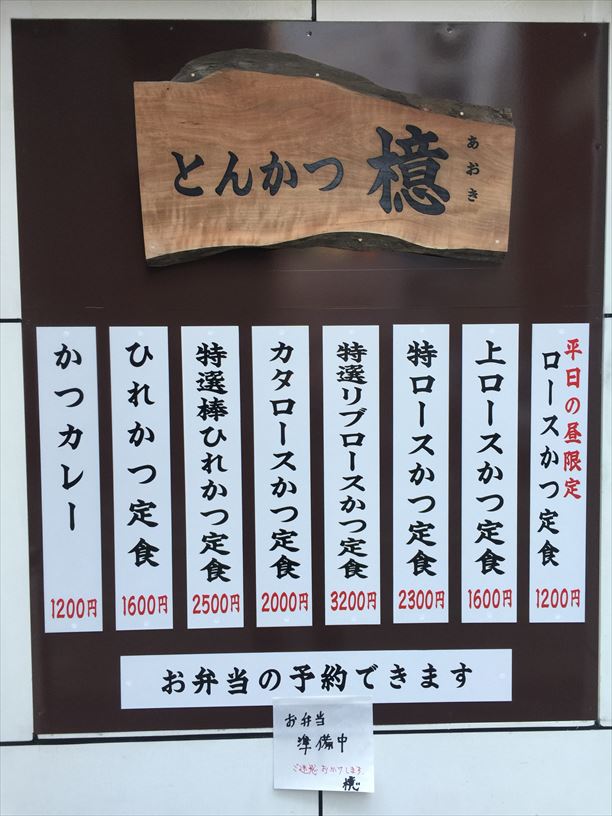 とんかつ 檍
あおき
平日の昼限定
ロースかつ定食
1200円
上ロースかつ定食
1600円
特ロースかつ定食
2300円
特選リブロースかつ定食
3200円
カタロースかつ定食
2000円
特選棒ひれかつ定食
2500円
ひれかつ定食
1600円
かつカレー
1200円
お弁当の予約できます
お弁当
準備中
ご迷惑おかけします。
檍